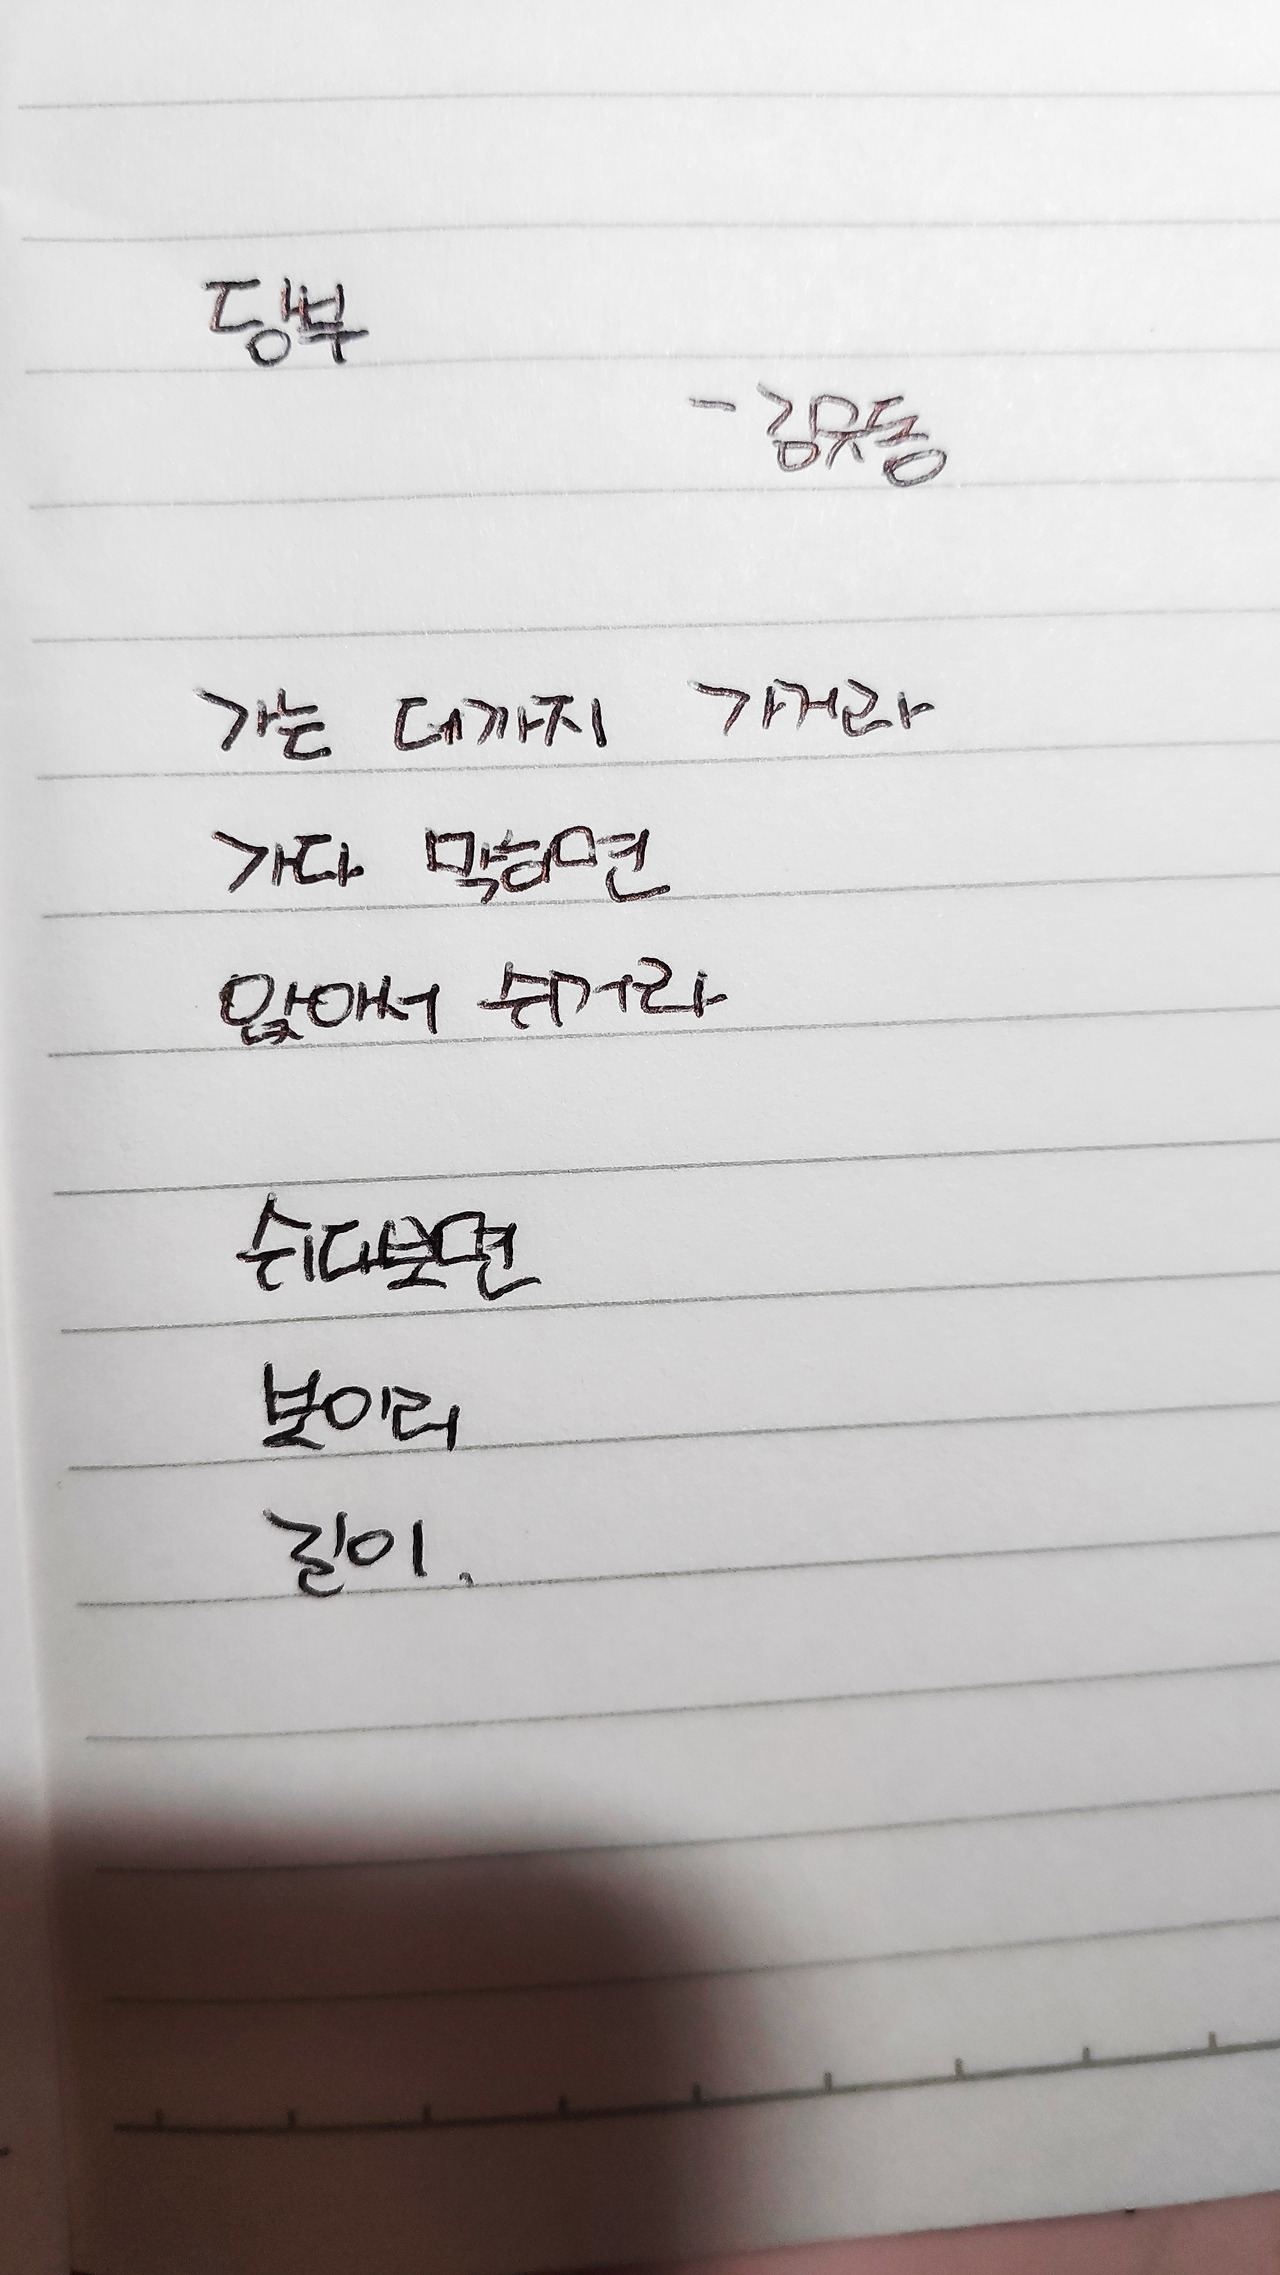 당부
- 김규동
가는 데까지 가거라
가다 막히면
앉아서 쉬거라
쉬다보면
보이리
길이.